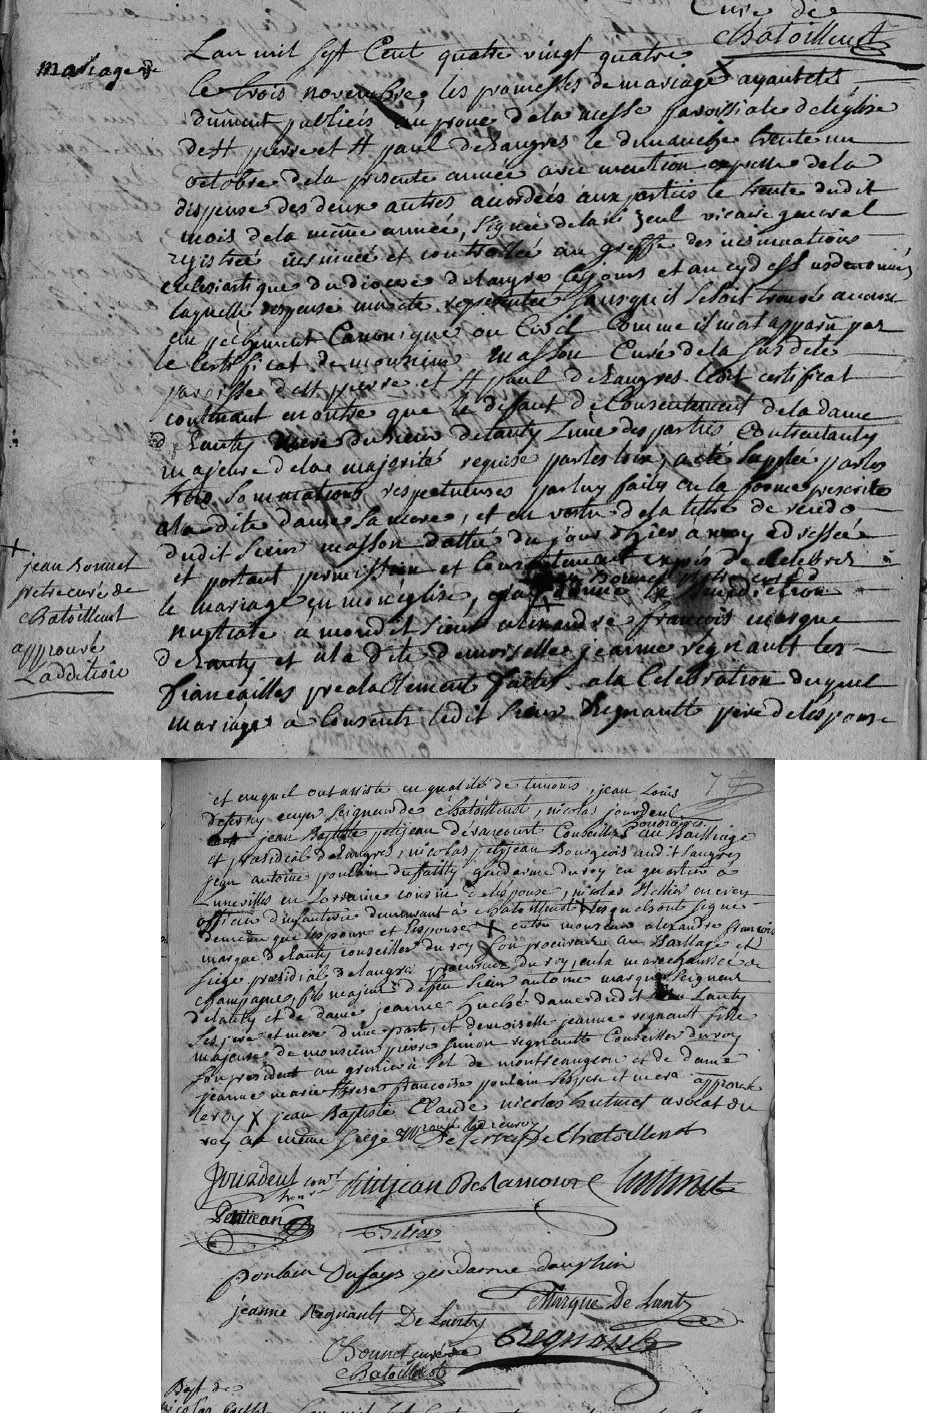 Cure de
Chatoillenot
mariage de
Lan mil sept Cent quatre vingt quatre
le trois novembre, les promesses de mariage ayant etés
dûment publiées au prone de la messe paroissiale de léglise
de st pierre et st paul de Langres le dimanche trente un
octobre de la presente année avec mention expresse de la
dispense des deux autres accordées aux parties le trente dudit
mois de la même année, Signée de la vicaire general
registrée insinuée et controllée au greffe des insinuations
eclesiastique du diocese de Langres les jours et an cy dessus denomés
laquelle dispense ma ete representée sans qu'il se soit trouvé aucun
empêchement Canonique ou Civil Comme il m'est apparu par
le Certificat de monsieur masson Curé de la susdite
paroisse de st pierre et st paul de Langres ledit certificat
contenant en outre que le deffaut de Consentement de la dame
de Lanty mere du sieur de Lanty l'une des parties Contractantes
majeure de la majorité requise par les loix, a eté supplée par les
trois sommations respectueuses par luy faites en la forme prescrite
a la dite dame sa mere, et en vertu de la lettre de
dudit sieur masson dattée du jour d'hier à moy adressée
et portant permission et Consentement exprés de celebrer
le mariage en mon eglise, donné la Benediction
nuptiale a mondit sieur alexandre françois marque
de Lanty et a la dite demoiselle jeanne regnault les
fiancailles prealablement faites. a la Celebration duquel
mariage a Consenti ledit sieur Regnault pere de l'epouse
+
jean Bonnet
pretre curé de
Chatoillenot
approuvé
L'addition
et auquel ont assisté en qualité de temoins, jean Louis
ecuyer Seigneur de Chatoillenot, nicolas jourdeuil
jean Baptiste petitjean de rancourt Conseiller honoraire au Bailliage
et presidial de Langres, nicolas petitjean Bourgeois audit Langres
jean antoine poulain dufailly gendarme du roy en quartier a
Luneville en Lorraine cousin de lépouse, nicolas ancien
officier d'infanterie demeurant à Chatoillenot lesquels ont signé
de même que l'epoux et l'epouse + entre monsieur alexandre francois
marque de Lanty conseiller du roy Son procureur au Baillage et
siege presidial de Langres procureur du roy, en la marechaussée de
champagne, fils majeur de feu sieur antoine marque seigneur
de Lanty et de dame jeanne dame dudit Lanty
ses pere et mere d'une part, et demoiselle jeanne regnault fille
majeure de monsieur pierre simon regnault Conseiller du roy
Son president au grenier à Sel de montsaugeon et de dame
jeanne marie therese francoise poulain ses pere et mere approuvé
le roy X jean Baptiste Claude nicolas avocat du
roy au même siege de Chatoillenot
Jourdeuil
Petitjean De Rancourt
Petitjean
Poulain Dufays gendarme dauphin
Marque De Lanty
jeanne Regnault De Lanty
Regnault
Bonnet curé de
Chatoillenot
Bapt de
nicolas